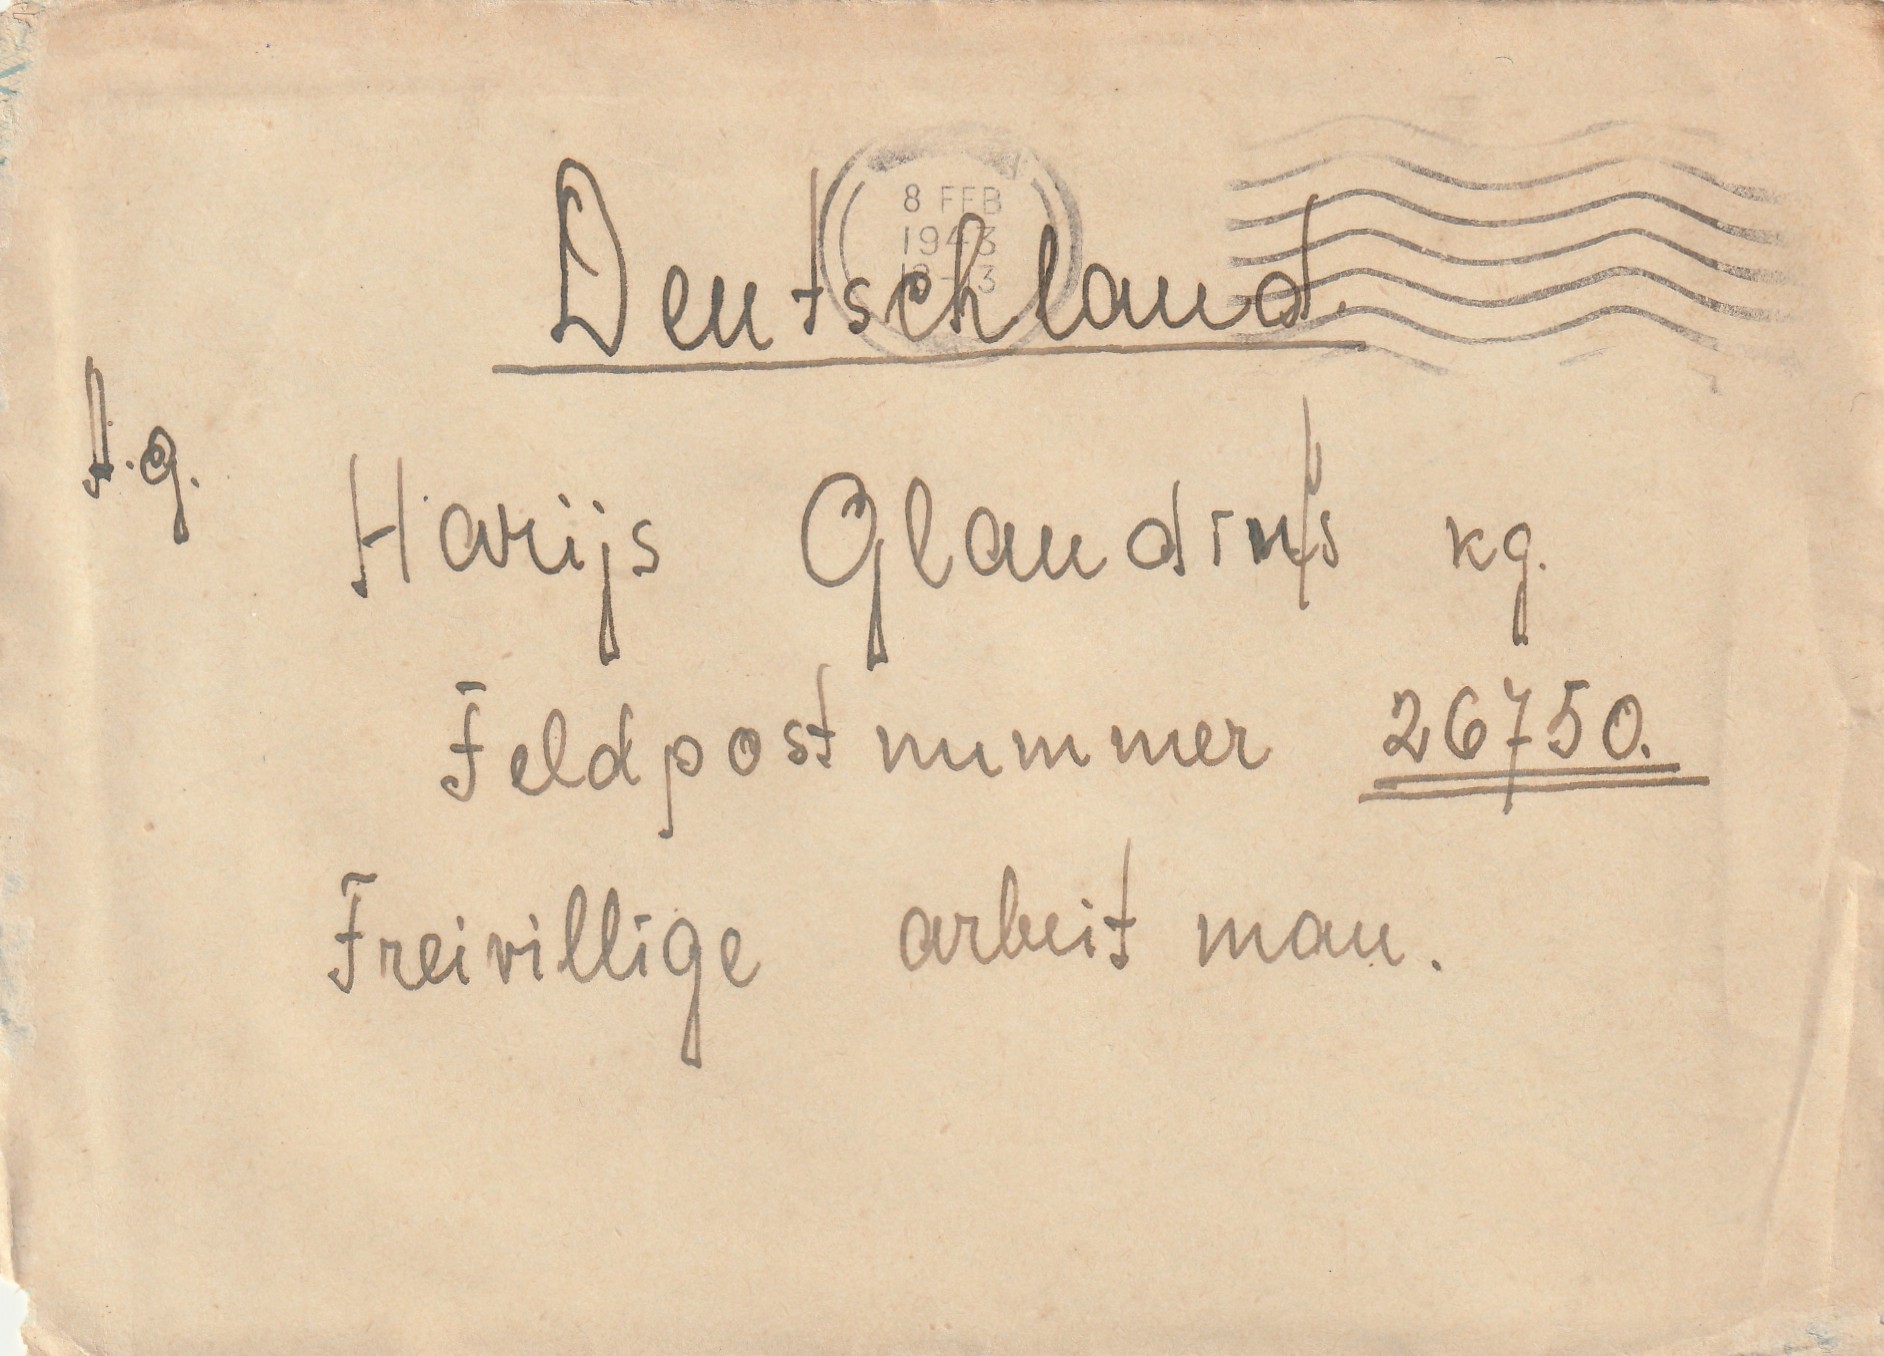 8 FEB
1943
Deutschland.
A.g.
Harijs Glaudiņš kg.
Feldpostnummer 26750.
Freivillige arbeitman.